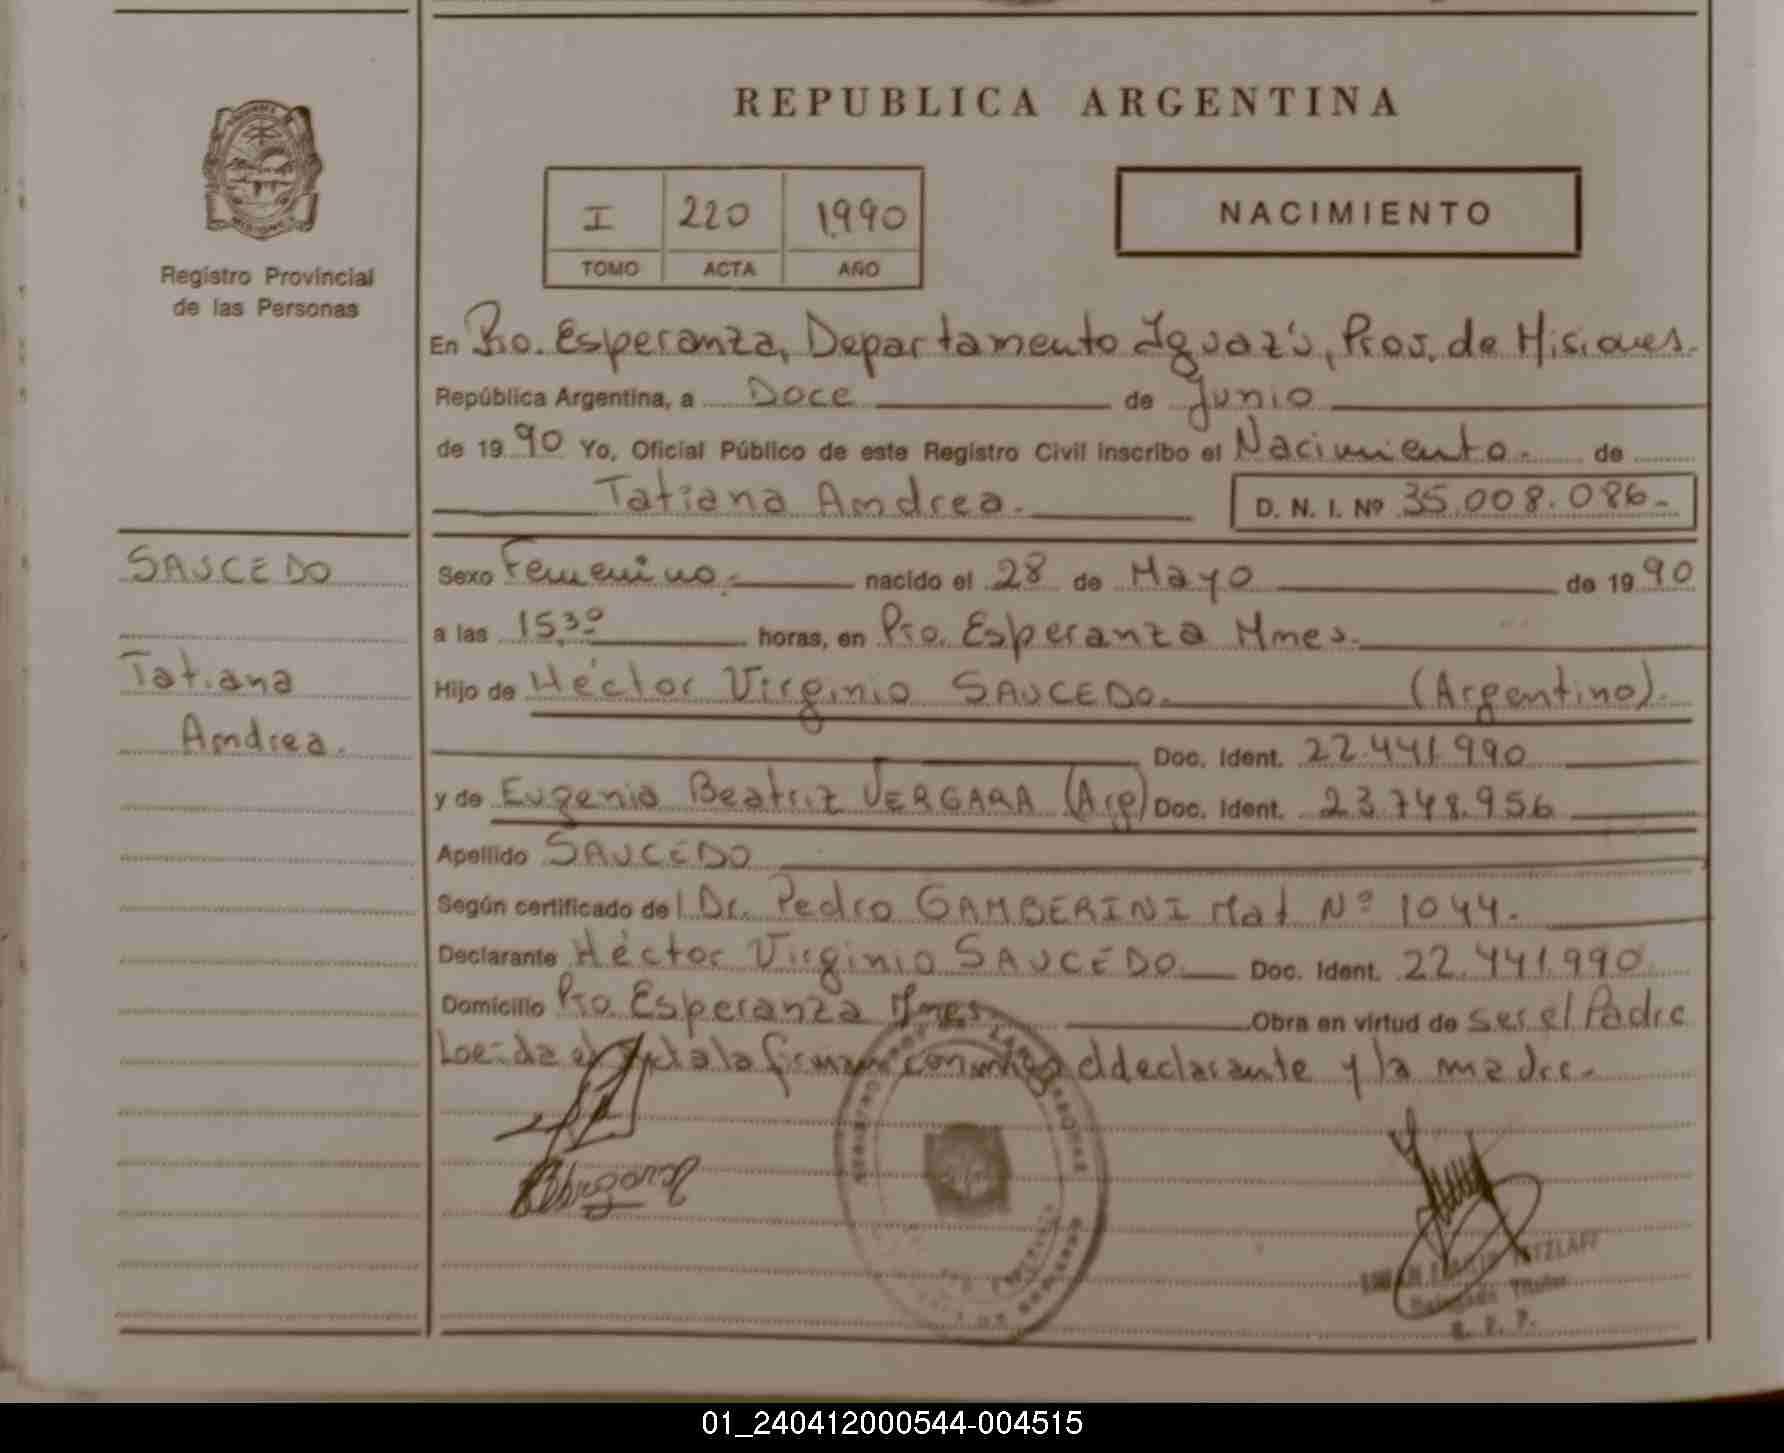 REPUBLICA ARGENTINA
I 220 1990
TOMO ACTA AÑO
NACIMIENTO
Registro Provincial
de las Personas
En Pto. Esperanza, Departamento Iguazú, Prov. de Misiones.
República Argentina, a Doce de Junio
de 19 90 Yo, Oficial Público de este Registro Civil inscribo el Nacimiento. de
Tatiana Andrea. D. N. I. Nº 35.008.086-
SAUCEDO
Tatiana
Andrea.
Sexo Femenino. nacido el 28 de Mayo de 19 90
a las 15,30 horas, en Pto. Esperanza Mnes.
Hijo de Héctor Virginio SAUCEDO. (Argentino).
Doc. Ident. 22.441.990
y de Eugenia Beatriz VERGARA (Arg) Doc. Ident. 23.748.956
Apellido SAUCEDO
Según certificado del Dr. Pedro GAMBERINI Mat Nº 1044.
Declarante Héctor Virginio SAUCEDO Doc. Ident. 22.441.990
Domicilio Pto. Esperanza Mnes Obra en virtud de ser el Padre
Leída el acta la firman conmigo el declarante y la madre.
Titular
R. P. P.
01_240412000544-004515